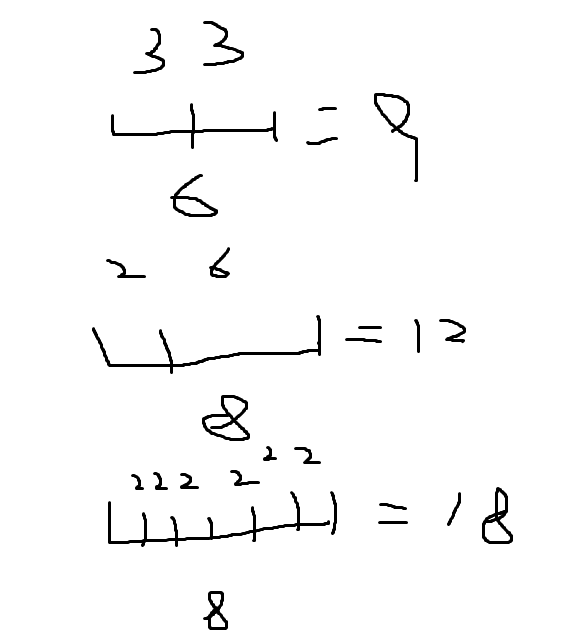 3 3
= 9
6
2 6
= 12
8
2 2 2 2 2 2
= 18
8